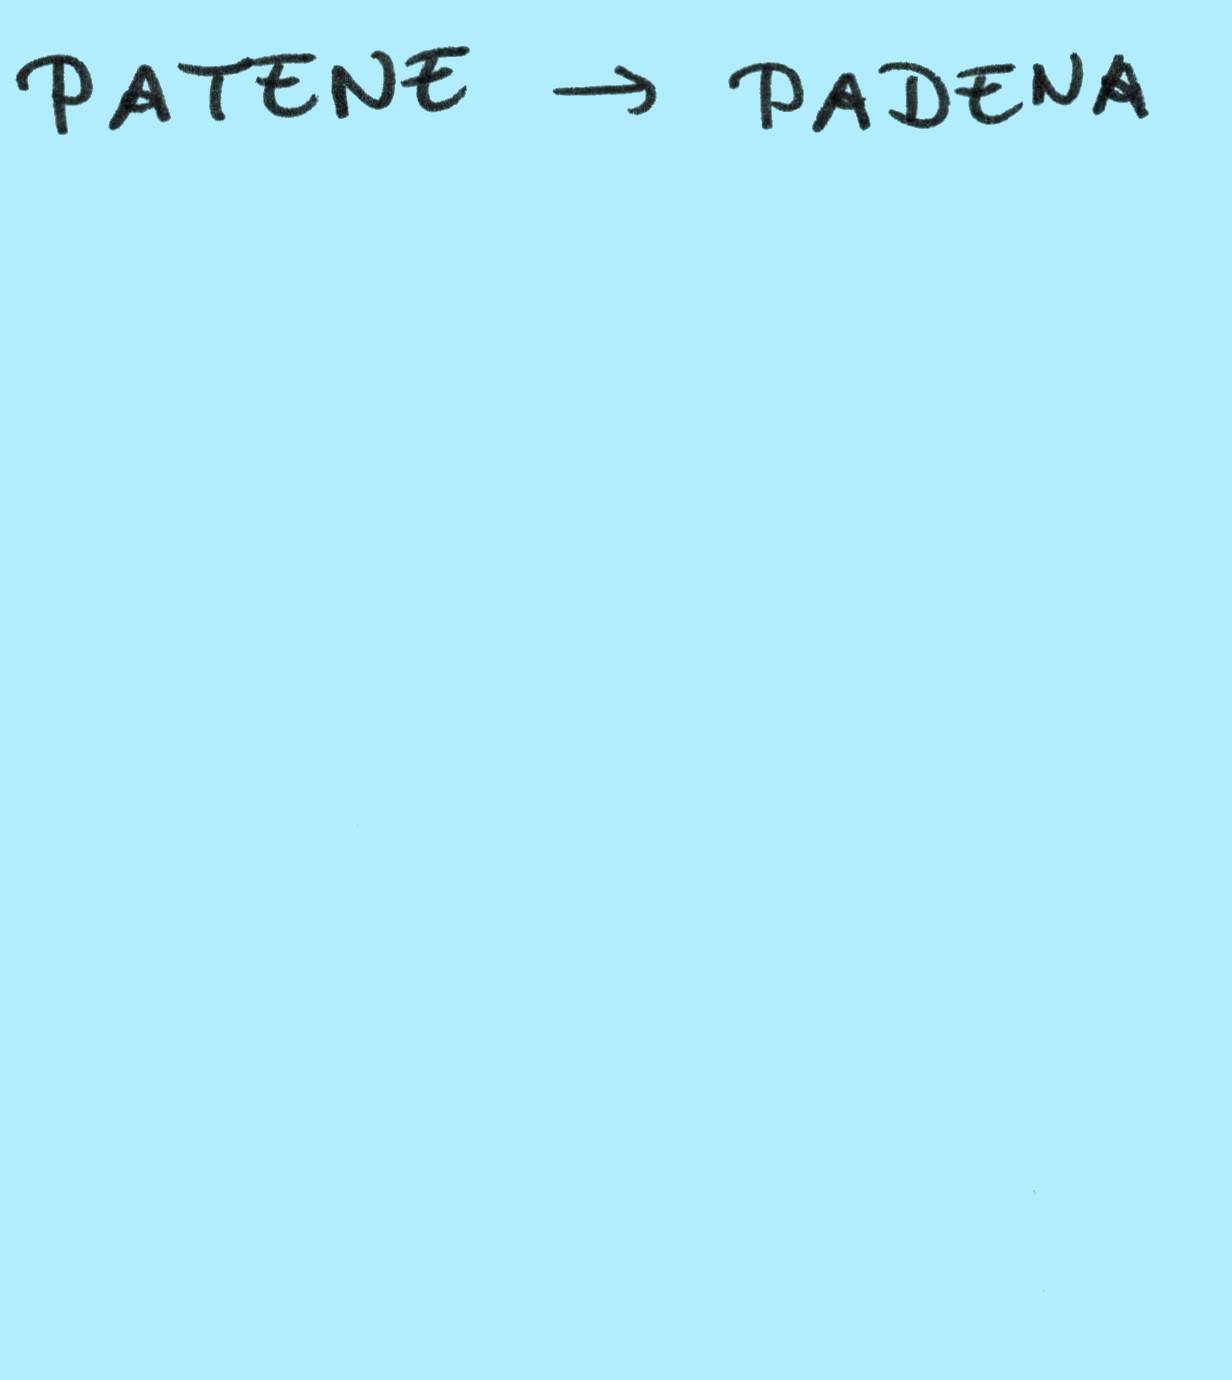 PATENE → PADENA